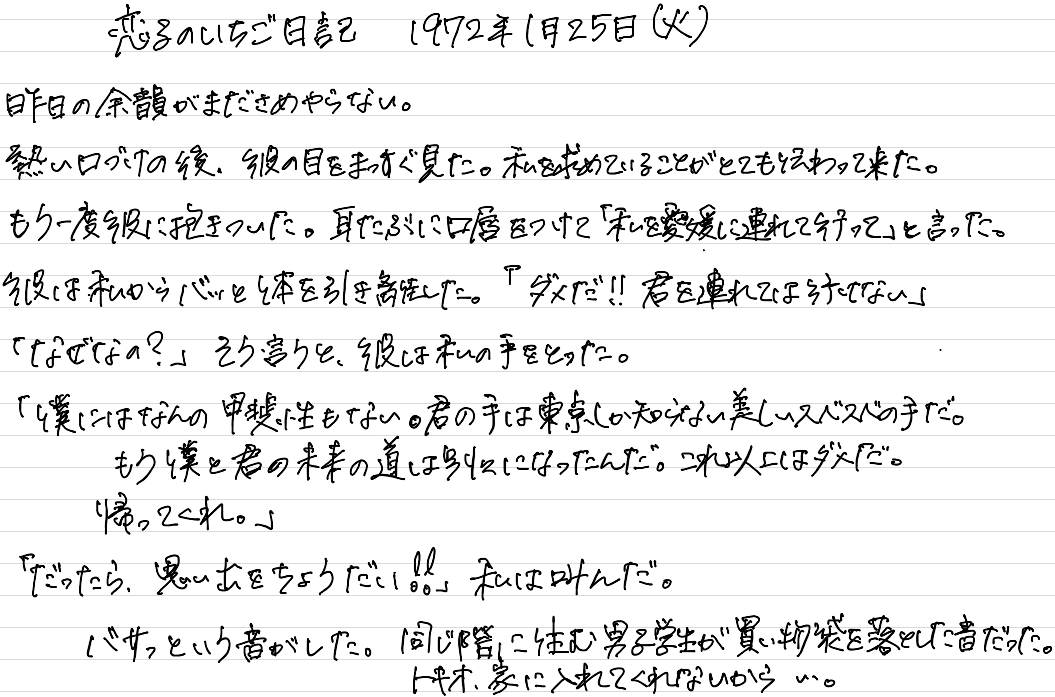 恋子のいちご日記 1972年1月25日(火)
昨日の余韻がまださめやらない。
熱い口づけの後、彼の目をまっすぐ見た。私を求めていることがとても伝わって来た。
もう一度彼に抱きついた。耳たぶに口唇をつけて「私を愛媛に連れて行って」と言った。
彼は私からバッと体を引き離した。「ダメだ!!君を連れては行けない」
「なぜなの?」そう言うと、彼は私の手をとった。
「僕にはなんの甲斐性もない。君の手は東京しか知らない美しいスベスベの手だ。
もう僕と君の未来の道は別々になったんだ。これ以上はダメだ。
帰ってくれ。」
「だったら、思い出をちょうだい!!」私は叫んだ。
バサッという音がした。同じ階に住む男子学生が買い物袋を落とした音だった。
トキオ、家に入れてくれないから…。